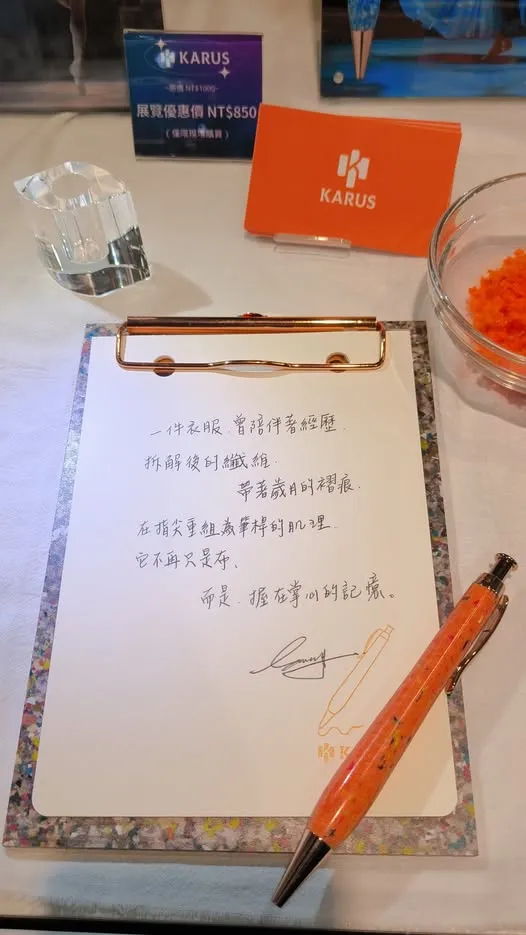 KARUS
原價 NT$1000
展覽優惠價 NT$850
（僅限現場購買）
KARUS
一件衣服.曾陪伴著經歷.
拆解後的纖維.
帶著歲月的褶痕.
在指尖重組為筆桿的肌理.
它不再只是布、
而是.握在掌心的記憶。
K